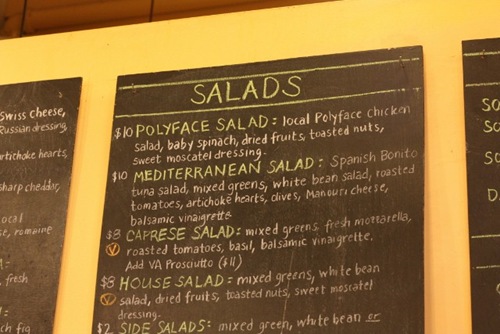 Swiss cheese,
Russian dressing,
artichoke hearts,
sharp cheddar,
romaine
fresh
fig
SALADS
$10 POLYFACE SALAD: local Polyface chicken
salad, baby spinach, dried fruits, toasted nuts,
sweet moscatel dressing.
$10 MEDITERRANEAN SALAD: Spanish Bonito
tuna salad, mixed greens, white bean salad, roasted
tomatoes, artichoke hearts, olives, Manouri cheese,
balsamic vinaigrette
$8 CAPRESE SALAD: mixed greens, fresh mozzarella,
V roasted tomatoes, basil, balsamic vinaigrette.
Add VA Prosciutto ($11)
$8 HOUSE SALAD: mixed greens, white bean
V salad, dried fruits, toasted nuts, sweet moscatel
dressing.
$2 SIDE SALADS: mixed green, white bean or